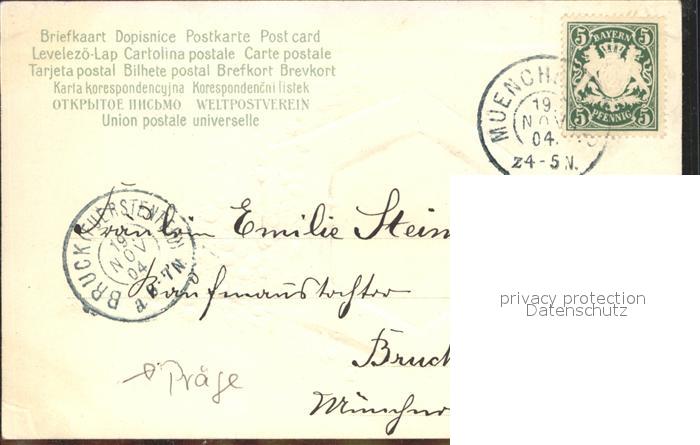 Briefkaart Dopisnice Postkarte Post card
Levelező-Lap Cartolina postale Carte postale
Tarjeta postal Bilhete postal Brefkort Brevkort
Karta korespondencyjna Korespondenční listek
ОТКРЫТОЕ ПИСЬМО WELTPOSTVEREIN
Union postale universelle
5 BAYERN 5
5 PFENNIG 5
MUENCH
19.
NOV
04.
24-5N.
BRUCK
19
NOV
04
6-7N.
Fräulein Emilie Stein
Kaufmannstochter
Bruck
Münchner
Präge
privacy protection
Datenschutz